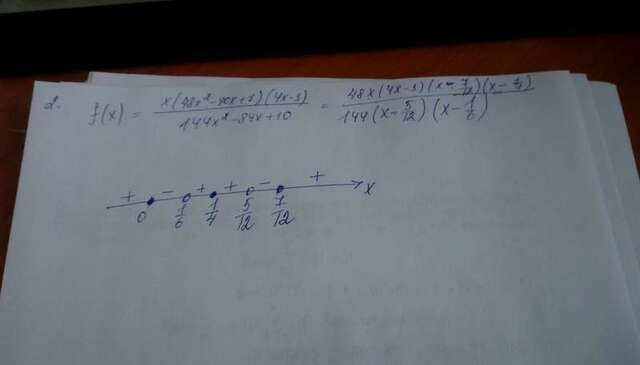 2. f(x) = x(48x²-40x+7)(4x-1) / 144x²-84x+10 = 48x(4x-1)(x-7/12)(x-1/4) / 144(x-5/12)(x-1/6)
+ - + + - +
0 1/6 1/4 5/12 7/12 x